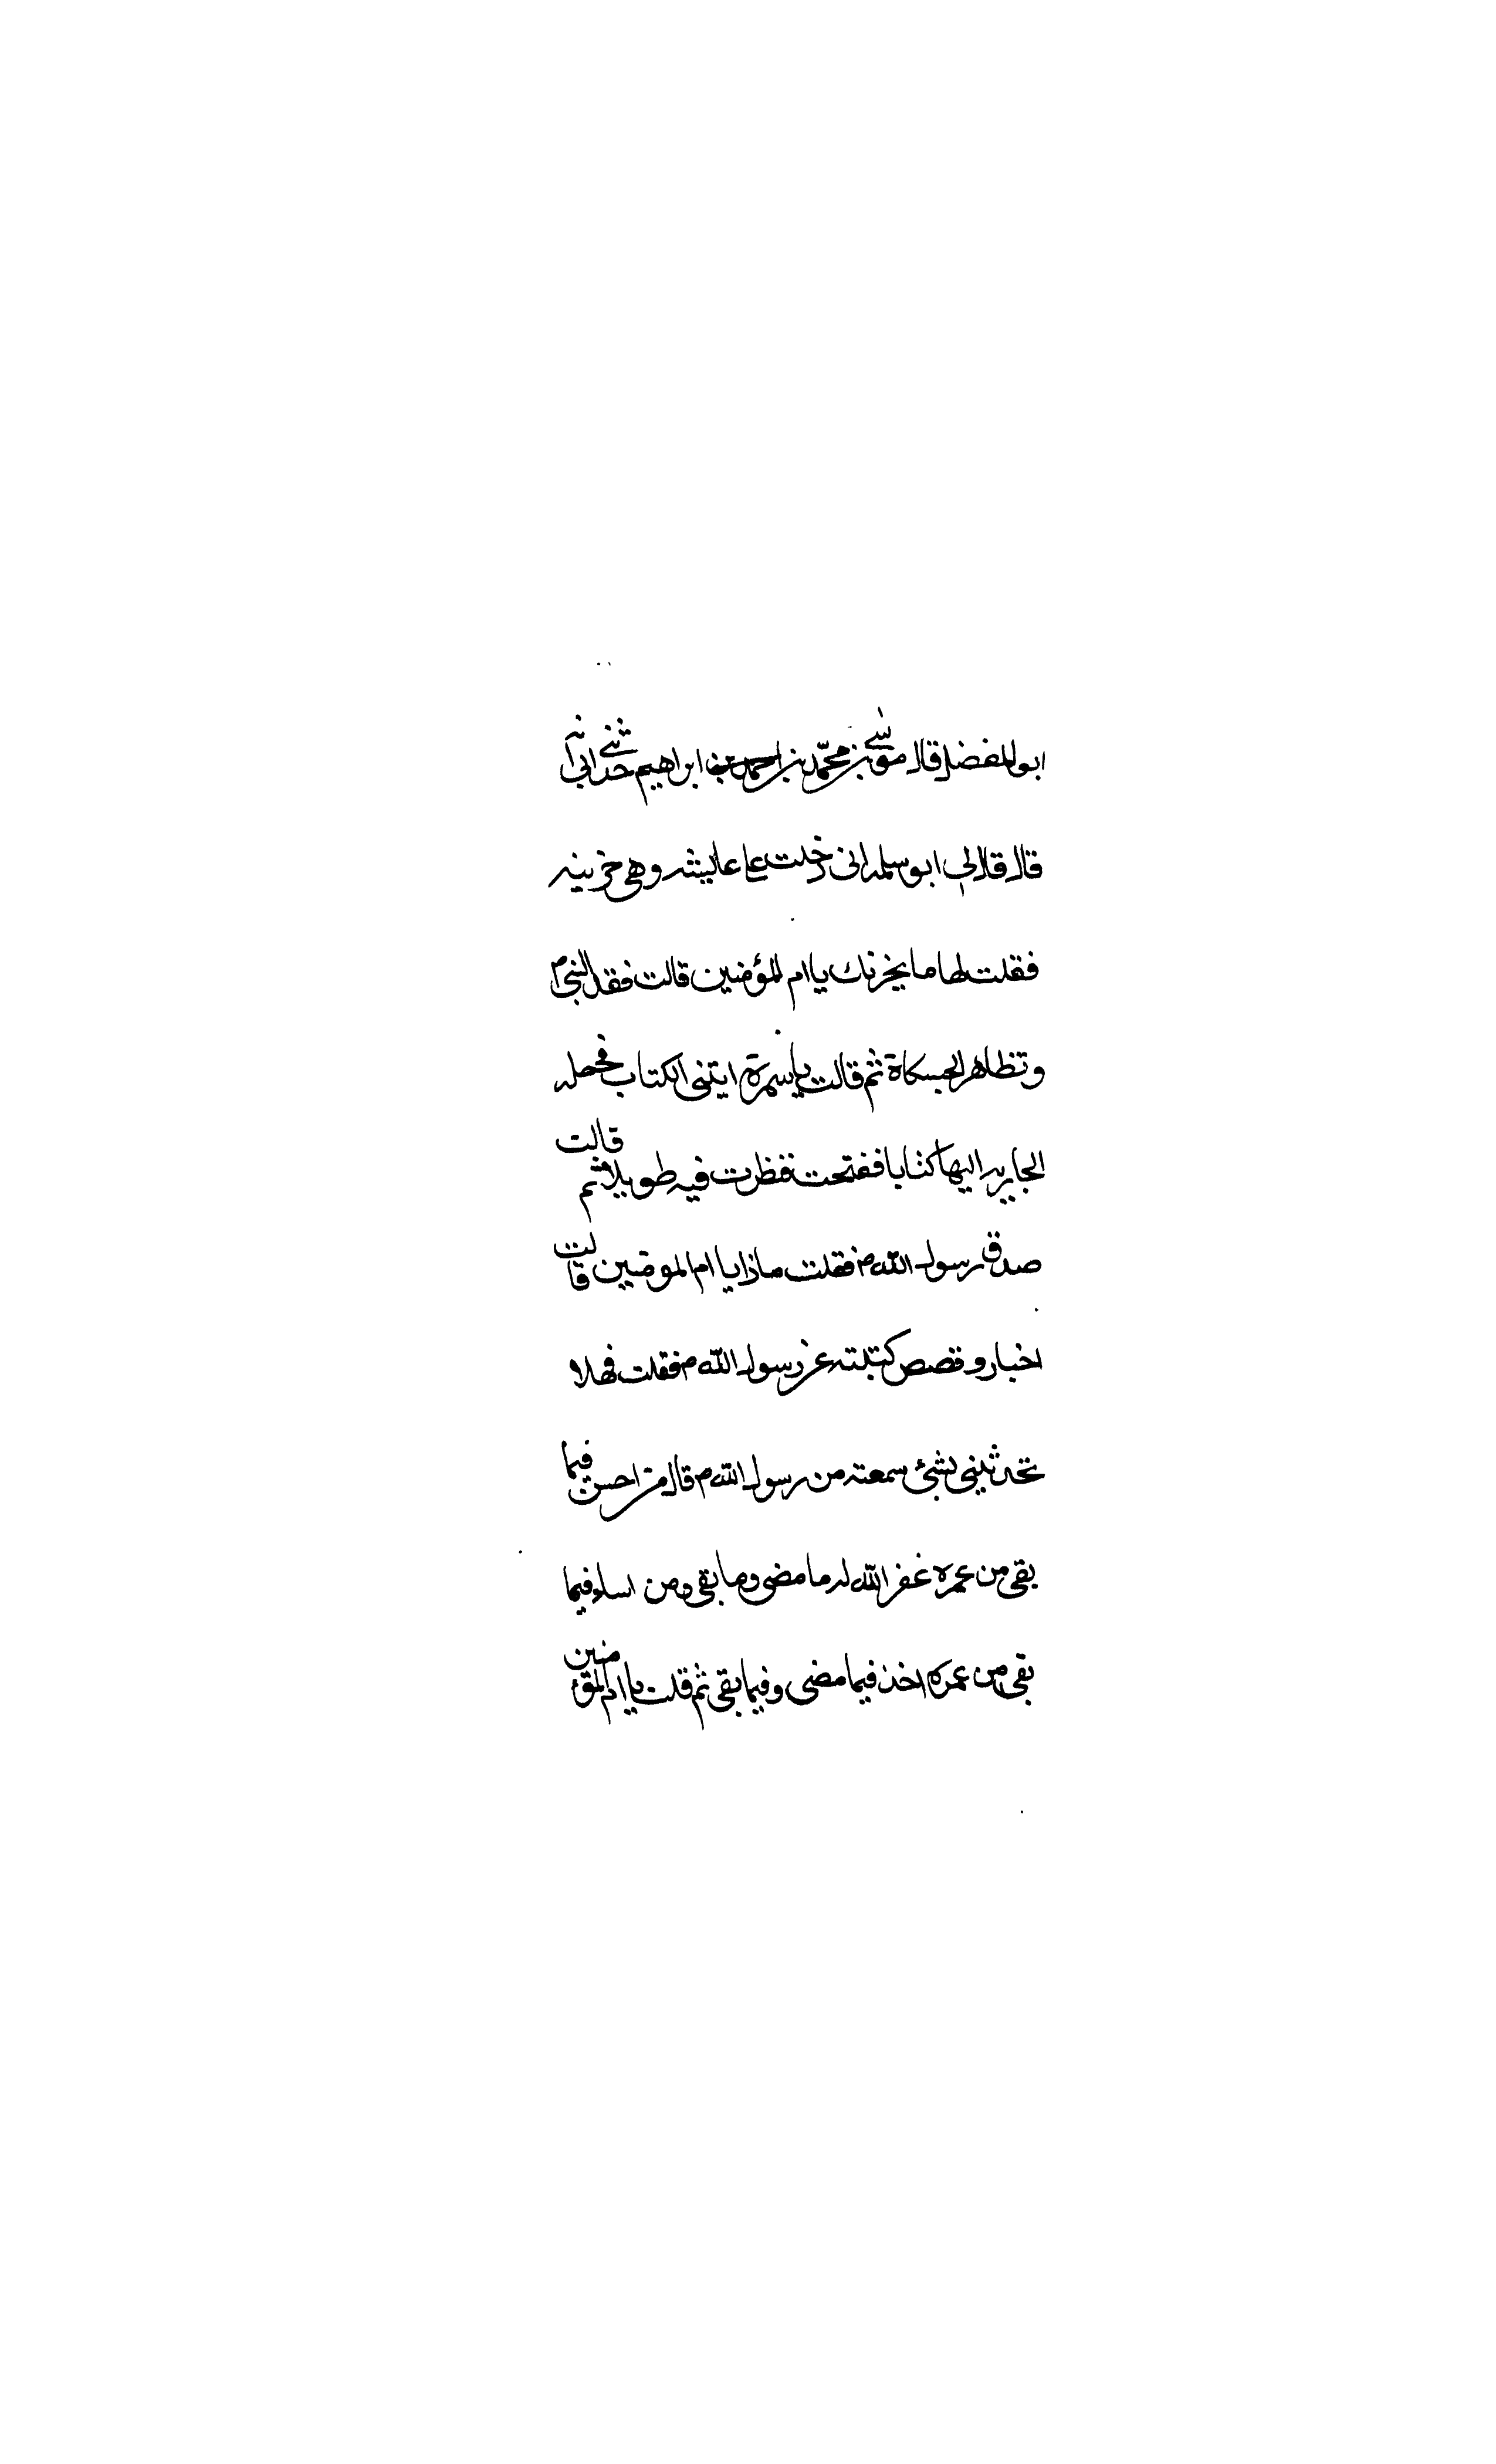 ابو المفضل قال موسى بن محمد بن احمد بن ابراهيم حدثنى ابى انه
قال قال لى ابو سلمه انى دخلت على عايشه وهى حزينه
فقلت لها ما يحزنك يا ام المؤمنين قالت فقد النبى م
وتظاهر الحسكاة ثم قالت يا سمرة ايتنى الكتاب فحمله
الجاريه اليها كتابا ففتحت نظرت فيه طويلا ثم قالت
صدق رسول الله م فقلت ماذا يا ام المومنين قالت
اخبار وقصص كتبته عن رسول الله م فقلت فهلا
تحدثينى بشئ سمعته من رسول الله م قال من احسن فيما
بقى من عمره غفر الله له ما مضى وما بقى ومن اساء فيما
بقى من عمره اخذ فيما مضى وفيما بقى ثم قلت يا ام المؤمنين